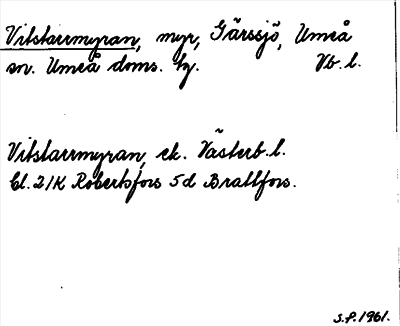 Vitstarrmyran, myr, Gärssjö, Umeå
sn. Umeå doms. hy. Vb. l.
Vitstarrmyran, ek. Västerb. l.
Bl. 21K Robertsfors 5d Brattfors.
S.P. 1961.